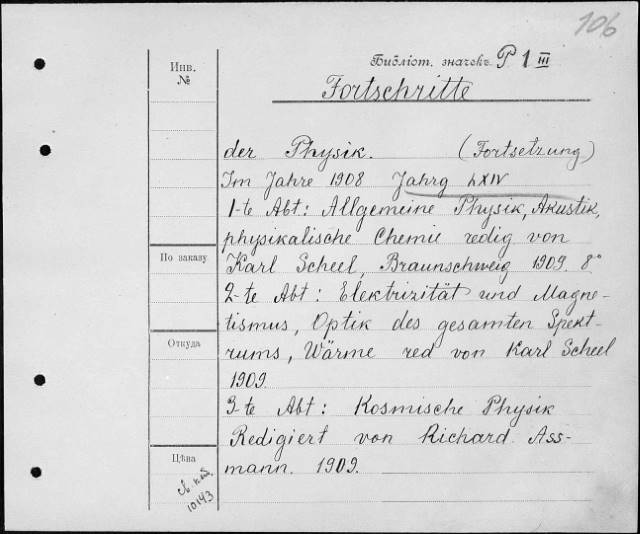 106
Инв.
№
Библіот. значекъ P 1 III
Fortschritte
der Physik. (Fortsetzung)
Im Jahre 1908 Jahrg LXIV
1-te Abt: Allgemeine Physik, Akustik,
physikalische Chemie redig von
По заказу
Karl Scheel, Braunschweig 1909. 8°
2-te Abt: Elektrizität und Magne-
tismus, Optik des gesamten Spekt-
Откуда
rums, Wärme red von Karl Scheel
1909.
3-te Abt: Kosmische Physik
Redigiert von Richard Ass-
Цѣна
mann. 1909.
10143